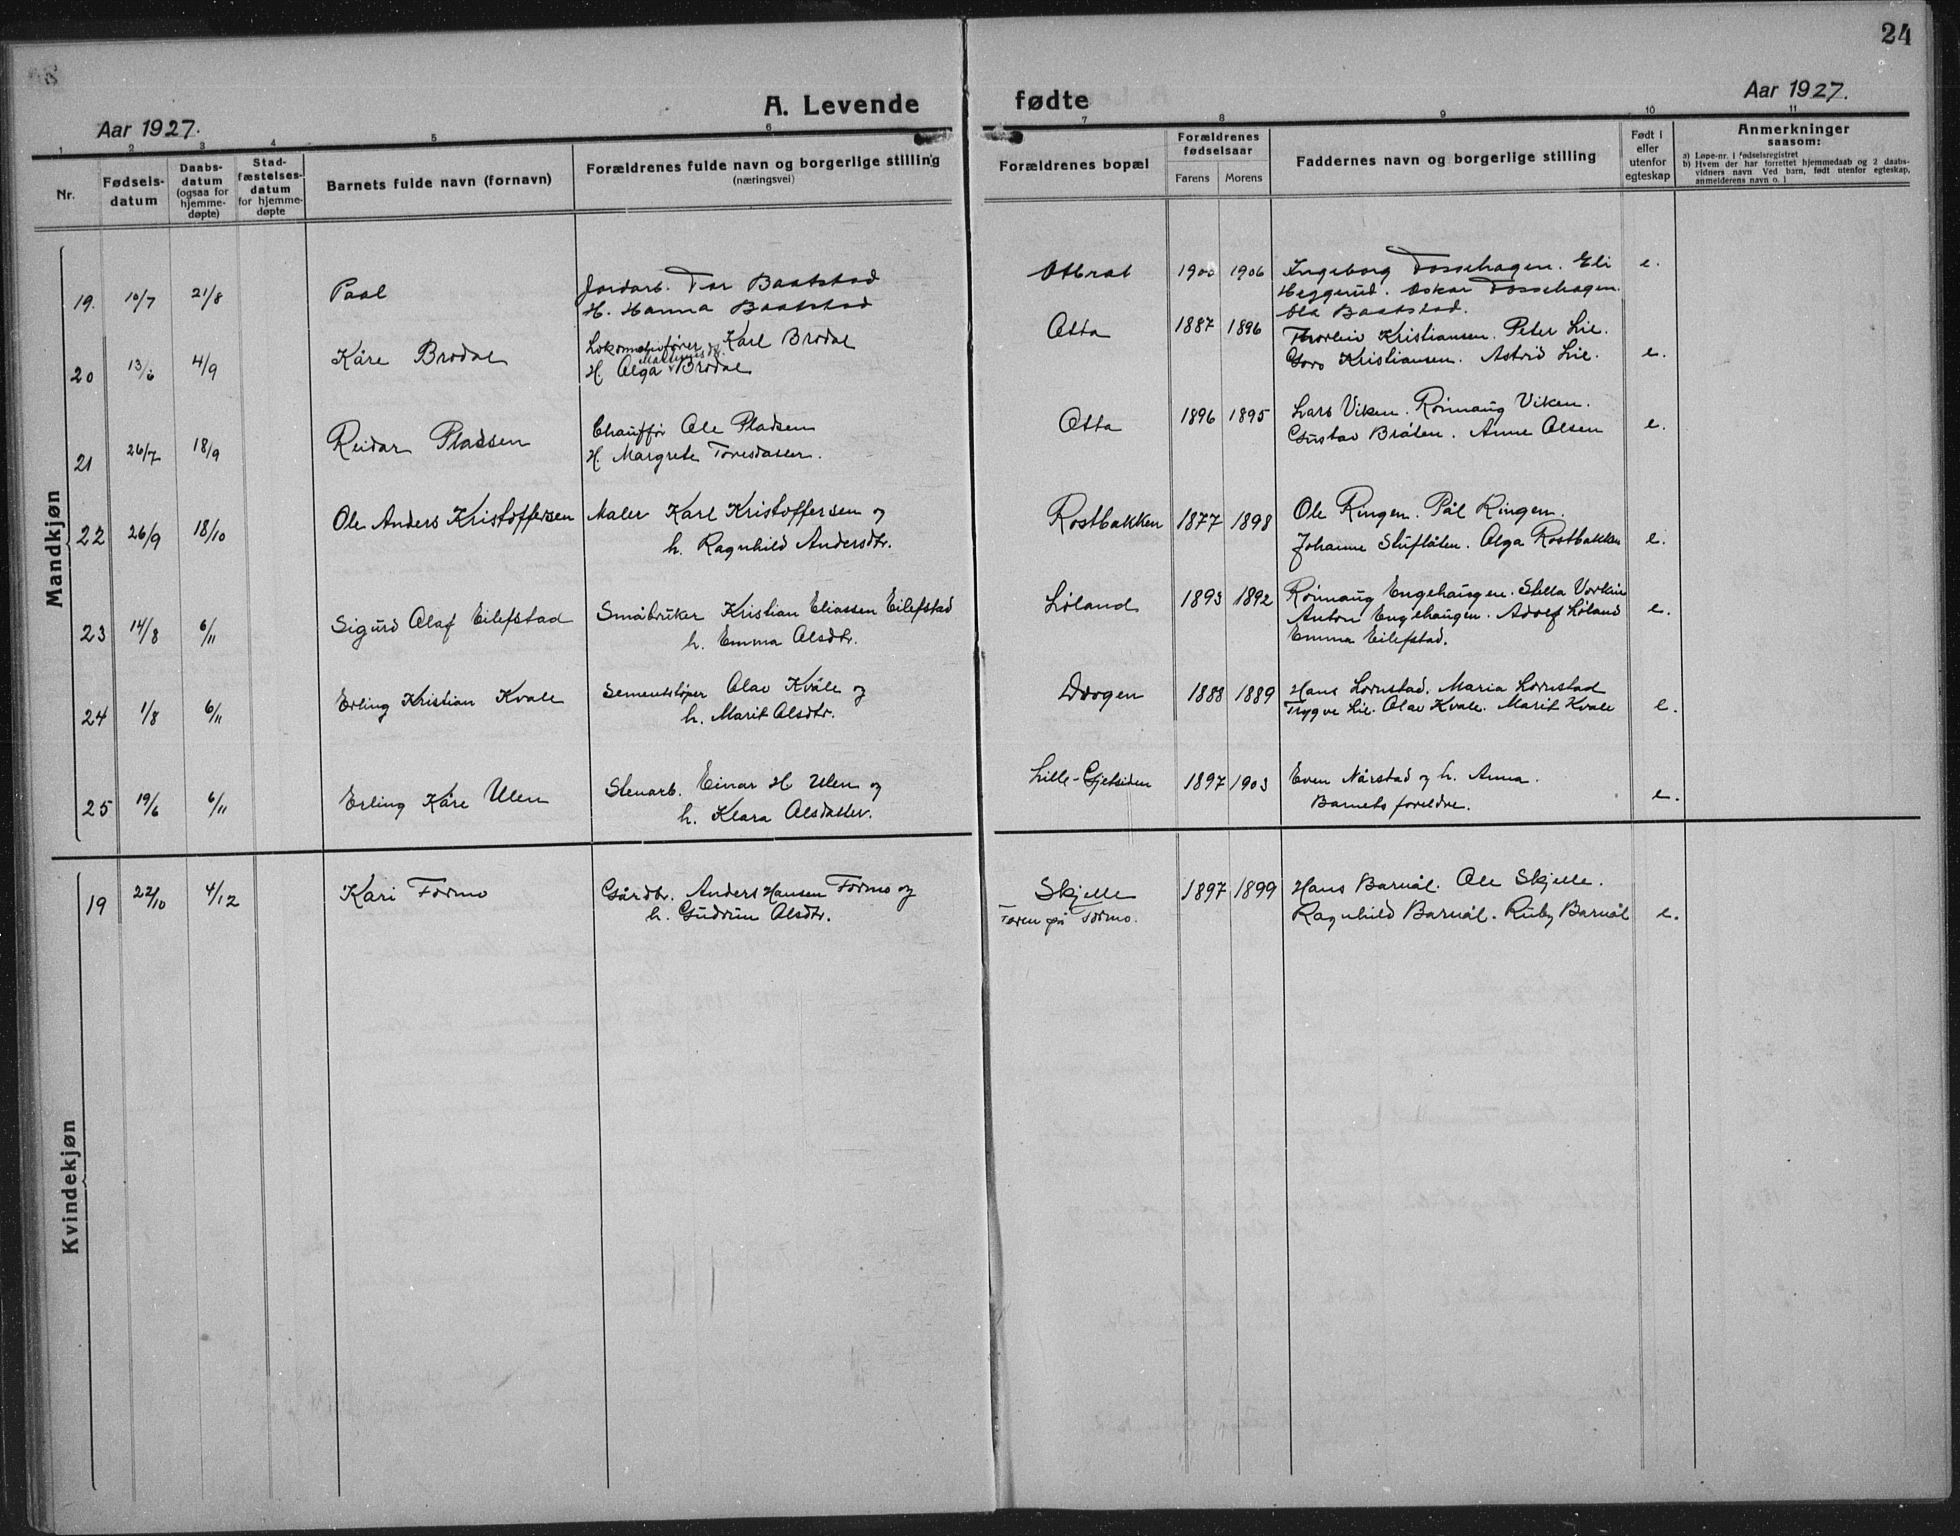 24
A. Levende fødte
Aar 1927.
Aar 1927.
1 2 3 4 5 6 7 8 9 10 11
Nr.
Fødsels-
datum
Daabs-
datum
(ogsaa for
hjemme-
døpte)
Stad-
fæstelses-
datum
for hjemme-
døpte
Barnets fulde navn (fornavn)
Forældrenes fulde navn og borgerlige stilling
(næringsvei)
Forældrenes bopæl
Forældrenes
fødselsaar
Farens Morens
Faddernes navn og borgerlige stilling
Født i
eller
utenfor
egteskap
Anmerkninger
saasom:
a) Løpe-nr. i fødselsregistret
b) Hvem der har forrettet hjemmedaab og 2 daabs-
vidners navn Ved barn, født utenfor egteskap,
anmelderens navn o. l
Mandkjøn
19. 10/7 21/8 Paal
Jordarb. Tor Baatstad
H. Hanna Baatstad
1900 1906
Ingeborg Tossehagen. Eli
Heggerud. Oskar Tossehagen.
Ola Baatstad.
e.
20 13/6 4/9 Kåre Brodal
Lokomotivfører Karl Brodal
H. Olga Brodal
Otta 1887 1896
Thorleiv Kristiansen. Peter Lie.
Kristiansen. Astrid Lie.
e.
21 26/7 18/9 Reidar Pladsen
Chauffør Ole Pladsen
H. Margrete Toresdatter.
Otta 1896 1895
Lars Viken. Rønnaug Viken.
Gustav Bråten. Anne Olsen
e.
22 26/9 18/10 Ole Anders Kristoffersen
Maler Karl Kristoffersen og
h. Ragnhild Andersdtr.
Rostbakken 1877 1898
Ole Ringen. Pål Ringen.
Johanne Stuflåten. Olga Rostbakken
e.
23 14/8 6/11 Sigurd Olaf Eilefstad
Småbruker Kristian Eliassen Eilefstad
h. Emma Olsdtr.
Løland 1893 1892
Rønnaug Engehaugen. Stella
Anton Engehaugen. Adolf Løland
Emma Eilefstad.
e.
24 1/8 6/11 Erling Kristian Kvale
Sementstøper Olav Kvåle og
h. Marit Olsdtr.
Dovgen 1888 1889
Hans Lornstad. Maria Lornstad
Trygve Lie. Olav Kvale. Marit Kvale
e.
25 19/6 6/11 Erling Kåre Ulen
Stenarb. Einar H Ulen og
h. Klara Olsdatter.
Lille-Gjetsiden 1897 1903
Even Nårstad og h. Anna.
Barnets foreldre.
e.
Kvindekjøn
19 22/10 4/12 Kari Formo
Gårdbr. Anders Hansen Formo og
h. Gudrun Olsdtr.
Skjelle
Faren på Formo.
1897 1899
Hans Barnål. Ole Skjelle.
Ragnhild Barnål. Ruby Barnål
e.